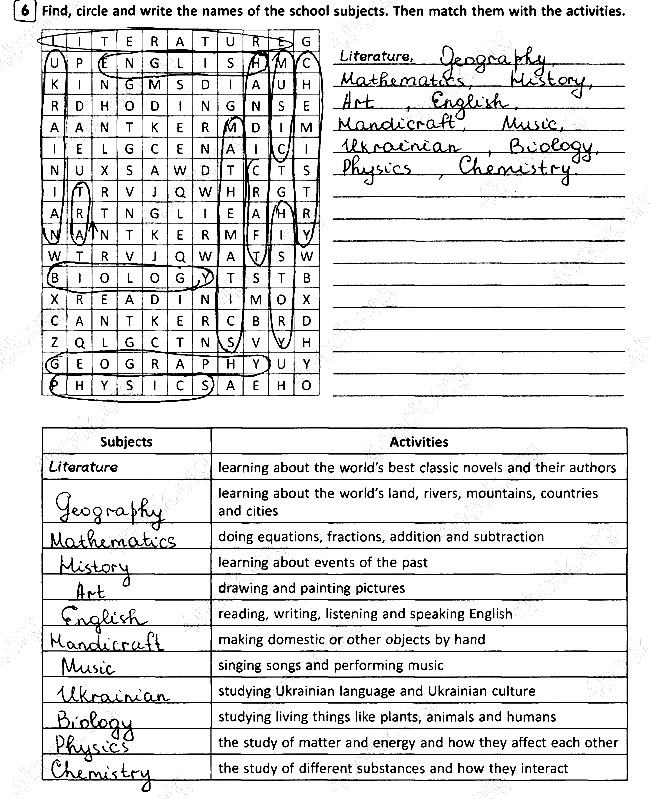 6 Find, circle and write the names of the school subjects. Then match them with the activities.
L I T E R A T U R E G
U P E N G L I S H M C
K I N G M S D I A U H
R D H O D I N G N S E
A A N T K E R M D I M
I E L G C E N A I C I
N U X S A W D T C T S
I T R V J Q W H R G T
A R T N G L I E A H R
N A N T K E R M F I Y
W T R V J Q W A T S W
B I O L O G Y T S T B
X R E A D I N I M O X
C A N T K E R C B R D
Z Q L G C T N S V Y H
G E O G R A P H Y U Y
P H Y S I C S A E H O
Literature, Geography,
Mathematics, History,
Art, English,
Handicraft, Music,
Ukrainian, Biology,
Physics, Chemistry.
Subjects Activities
Literature learning about the world's best classic novels and their authors
Geography learning about the world's land, rivers, mountains, countries
and cities
Mathematics doing equations, fractions, addition and subtraction
History learning about events of the past
Art drawing and painting pictures
English reading, writing, listening and speaking English
Handicraft making domestic or other objects by hand
Music singing songs and performing music
Ukrainian studying Ukrainian language and Ukrainian culture
Biology studying living things like plants, animals and humans
Physics the study of matter and energy and how they affect each other
Chemistry the study of different substances and how they interact